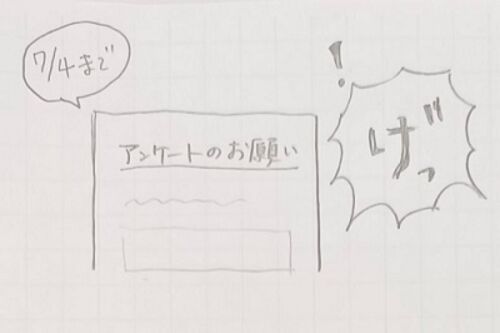 7/4まで
!
げっ
アンケートのお願い